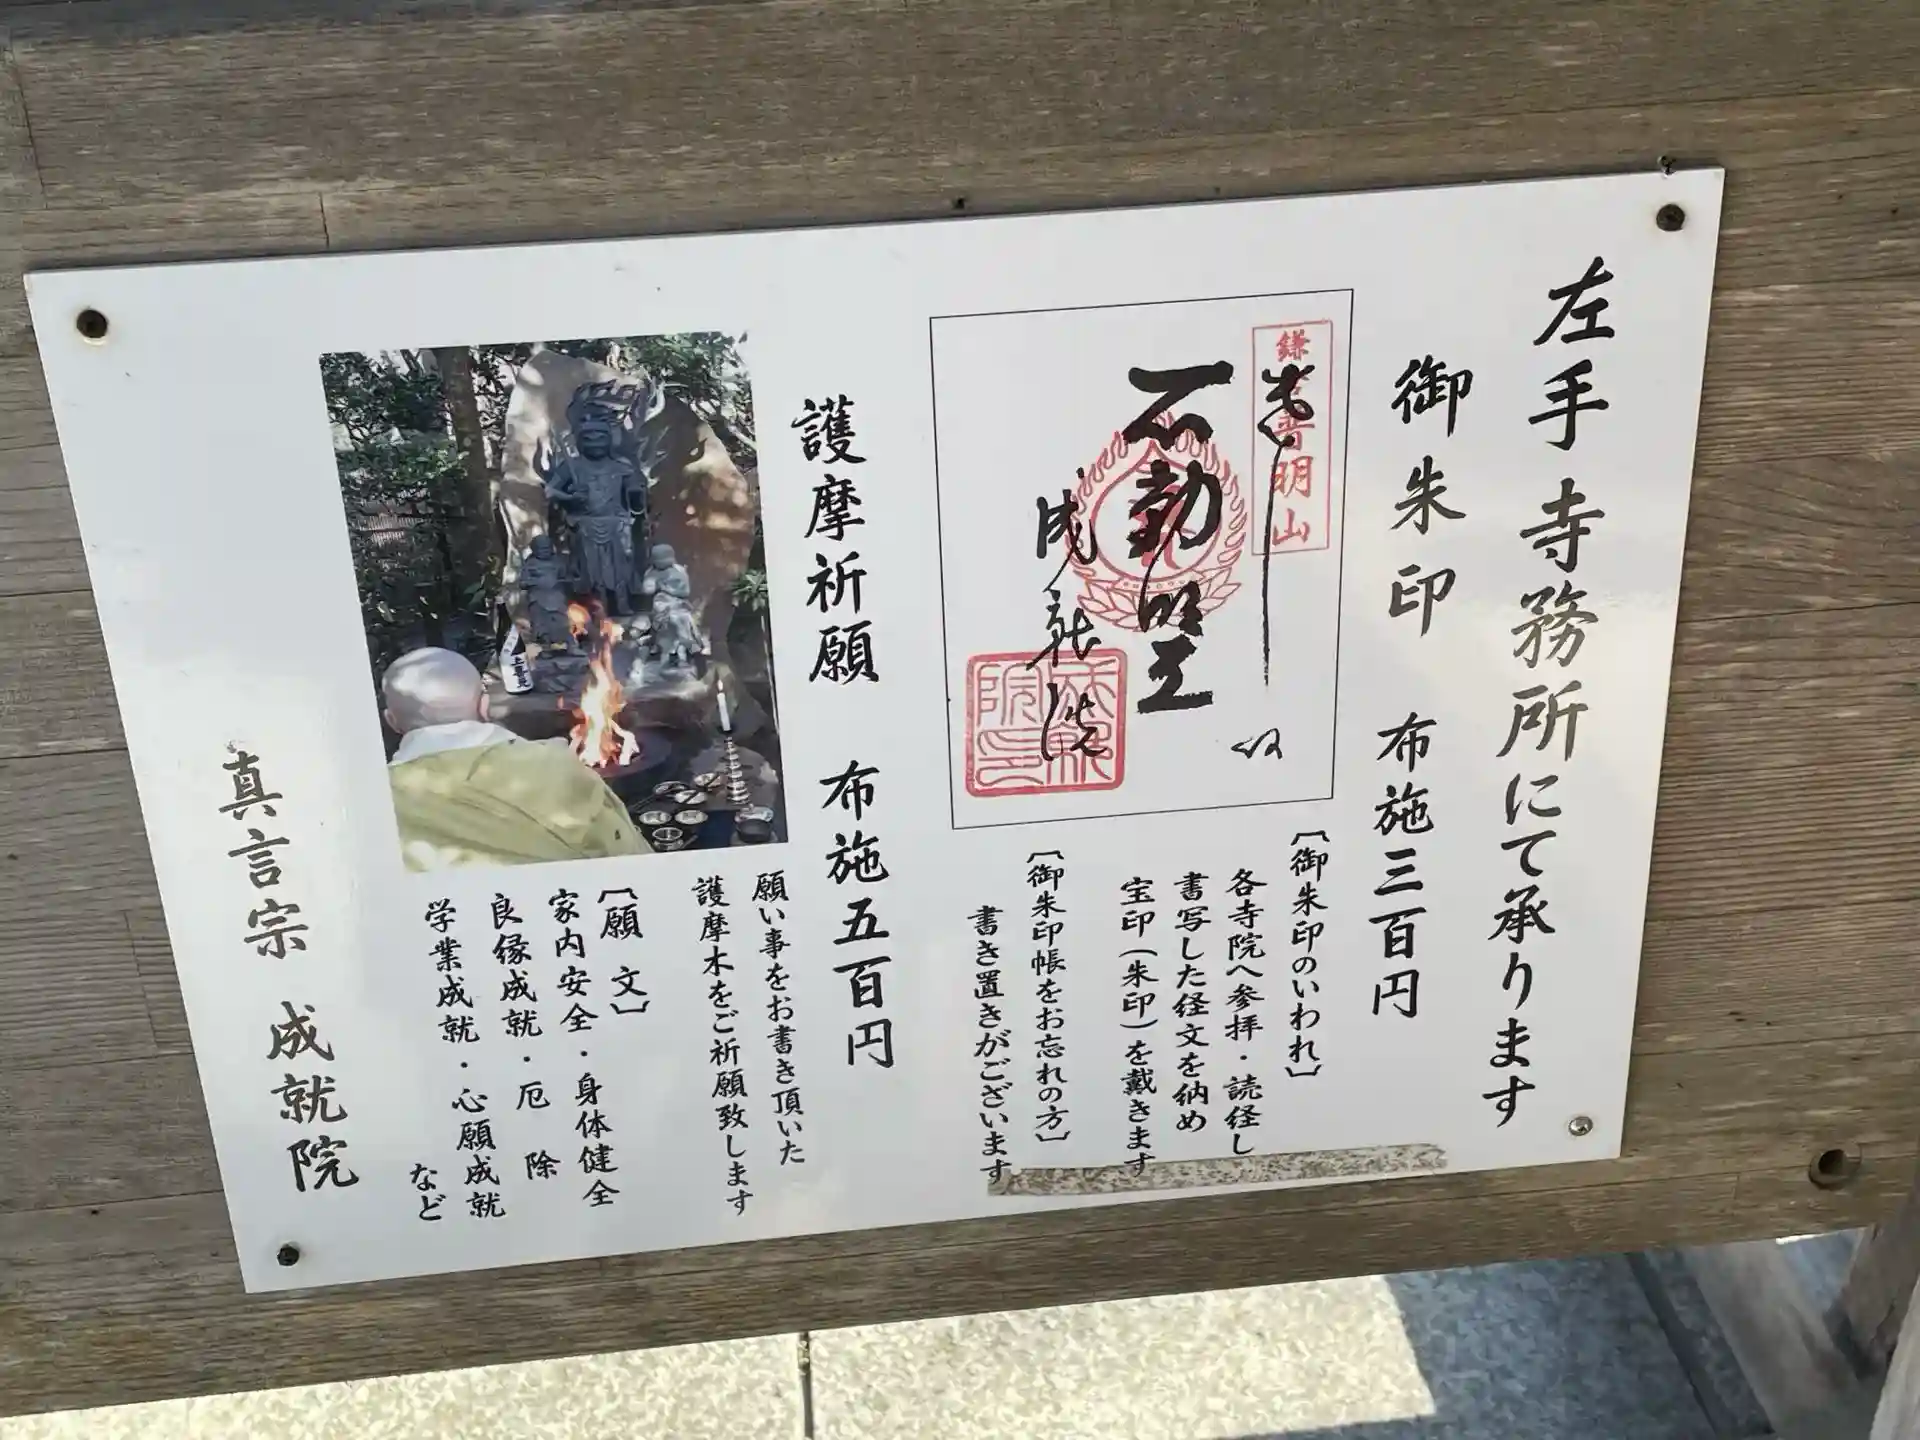 左手寺務所にて承ります
御朱印 布施三百円
鎌
普明山
不動明王
成就院
〔御朱印のいわれ〕
各寺院へ参拝・読経し
書写した経文を納め
宝印（朱印）を戴きます
〔御朱印帳をお忘れの方〕
書き置きがございます
護摩祈願 布施五百円
願い事をお書き頂いた
護摩木をご祈願致します
〔願 文〕
家内安全・身体健全
良縁成就・厄 除
学業成就・心願成就
など
真言宗 成就院